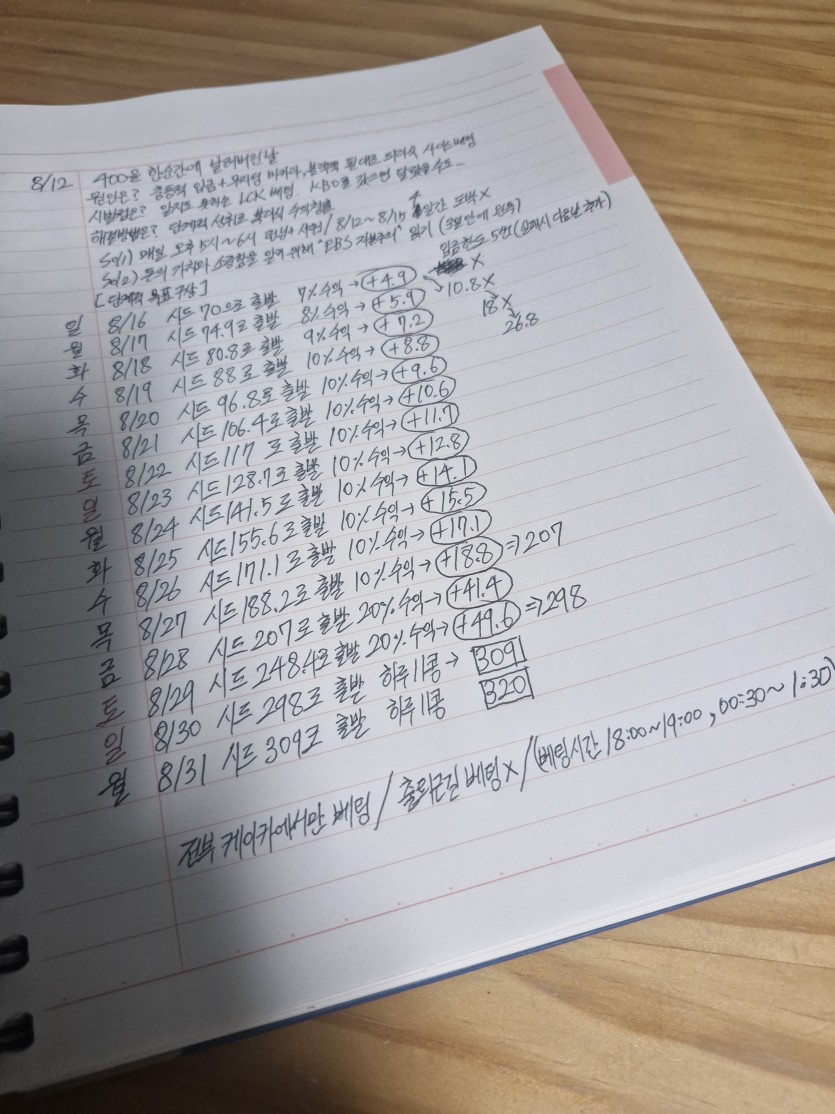 8/12 400을 한순간에 날려버린날
원인은? 충동적 입금+무지성 바카라, 블랙잭 필대로 마지막 사이드베팅
시발점은? 알지도 못하는 LCK 베팅. KBO를 갔으면 달랐을수도...
해결방법은? 단계적 선위로 복다식 수익창출
Sol1) 매일 오후 5시~6시 런닝+샤워 / 8/12~8/15 4일간 도박X
Sol2) 돈의 가치와 소중함을 알기 위해 "EBS 자본주의" 읽기 (3일안에 완독)
[단계적 목표구상] 입금한도 5번(실패시 다음날 추가)
일 8/16 시드 70으로 출발 7% 수익→ +4.9 X
월 8/17 시드 74.9로 출발 8% 수익→ +5.9 10.8X
화 8/18 시드 80.8로 출발 9% 수익→ +7.2 18X
수 8/19 시드 88로 출발 10% 수익→ +8.8 26.8
목 8/20 시드 96.8로 출발 10% 수익→ +9.6
금 8/21 시드 106.4로 출발 10% 수익→ +10.6
토 8/22 시드 117로 출발 10% 수익→ +11.7
일 8/23 시드 128.7로 출발 10% 수익→ +12.8
월 8/24 시드 141.5로 출발 10% 수익→ +14.1
화 8/25 시드 155.6로 출발 10% 수익→ +15.5
수 8/26 시드 171.1로 출발 10% 수익→ +17.1
목 8/27 시드 188.2로 출발 10% 수익→ +18.8 ⇒207
금 8/28 시드 207로 출발 20% 수익→ +41.4
토 8/29 시드 248.4로 출발 20% 수익→ +49.6 ⇒298
일 8/30 시드 298로 출발 하루 11콩→ 309
월 8/31 시드 309로 출발 하루 11콩 320
전부 케이카에서만 베팅 / 출퇴근길 베팅X / (베팅시간 18:00~19:00, 00:30~1:30)